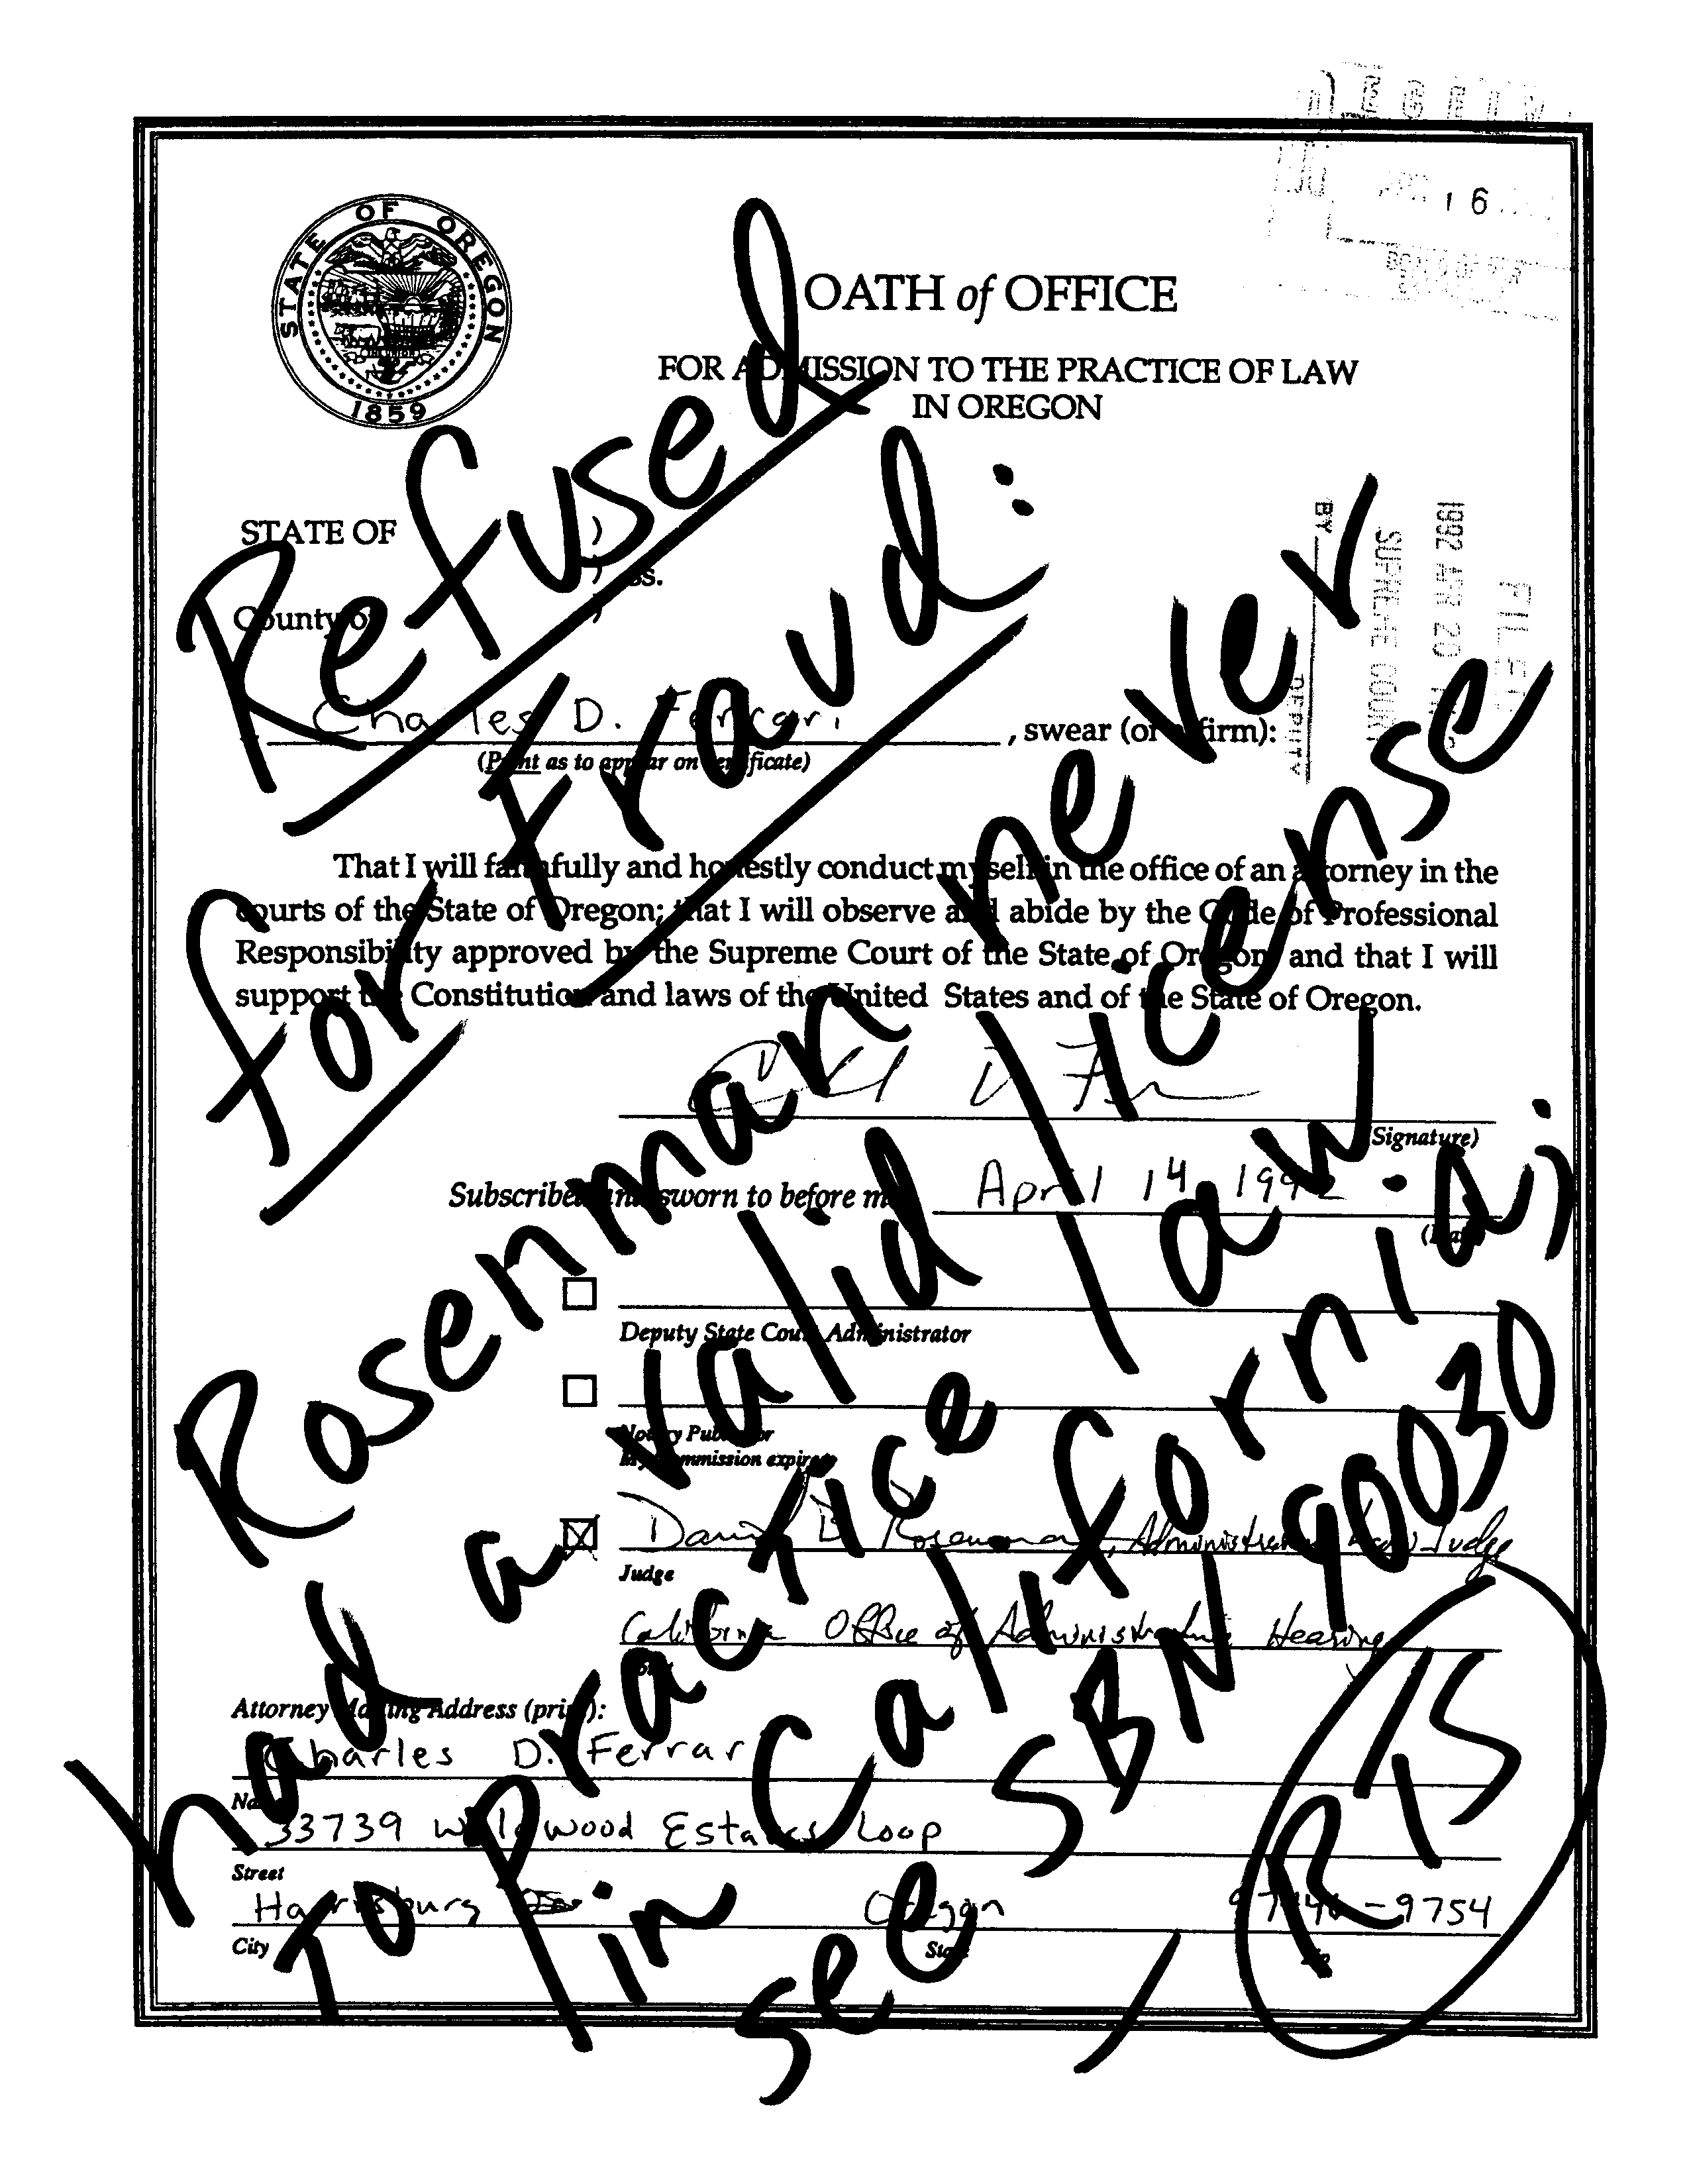 STATE OF OREGON
1859
16
OATH of OFFICE
FOR ADMISSION TO THE PRACTICE OF LAW
IN OREGON
STATE OF )
) ss.
County of )
Charles D. Ferrari
, swear (or affirm):
(Print as to appear on certificate)
FILED
1992 APR 20
SUPREME COURT
BY
DEPUTY
That I will faithfully and honestly conduct myself in the office of an attorney in the
courts of the State of Oregon; that I will observe and abide by the Code of Professional
Responsibility approved by the Supreme Court of the State of Oregon, and that I will
support the Constitution and laws of the United States and of the State of Oregon.
(Signature)
Subscribed and sworn to before me April 14 1992
(Date)
Deputy State Court Administrator
Notary Public for
My commission expires
David B Rosenman, Administrative Law Judge
Judge
California Office of Administrative Hearings
Attorney Mailing Address (print):
Charles D. Ferrari
Name
33739 Wildwood Estates Loop
Street
Harrisburg Oregon -9754
City State Zip
Refused
for Fraud:
Rosenman never
had a valid license
To Practice law
in California;
see SBN 90030
RTS